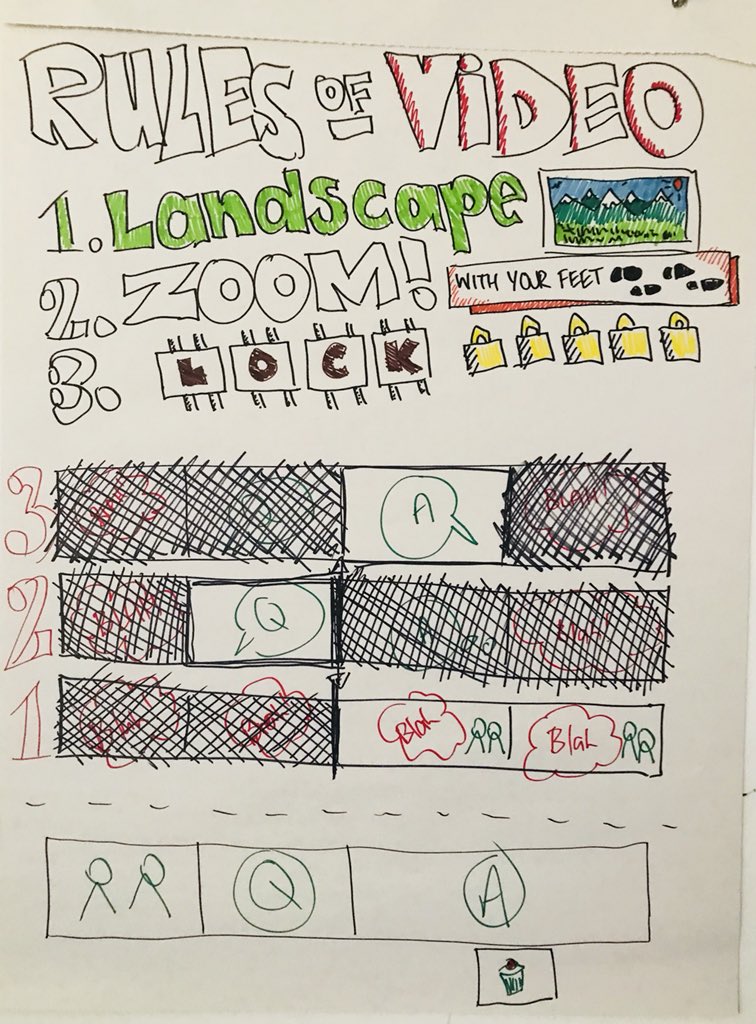 RULES OF VIDEO
1. Landscape
2. ZOOM! WITH YOUR FEET
3. LOCK
3 Blah! Q A BLAH!
2 Blah! Q A Blah!
1 Blah Blah Blah Blah
Q A